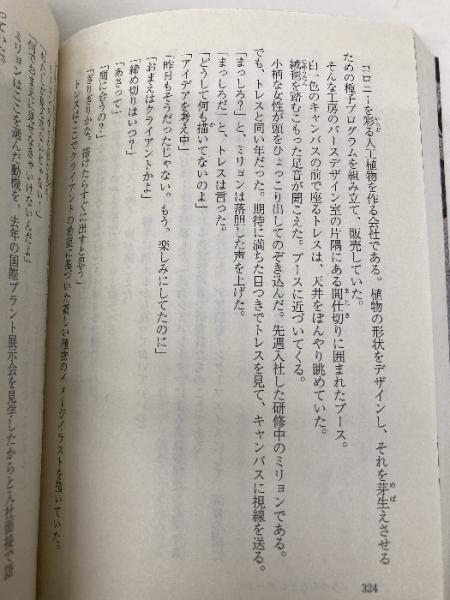 コロニーを彩る人工植物を作る会社である。植物の形状をデザインし、それを芽生えさせる
ための種子プログラムを組み立て、販売していた。
そんな工房のパースデザイン室の片隅にある間仕切りに囲まれたブース。
白一色のキャンバスの前で座るトレスは、天井をぼんやり眺めていた。
絨毯を踏むこもった足音が聞こえた。ブースに近づいてくる。
小柄な女性が頭をひょっこり出してのぞき込んだ。先週入社した研修中のミリョンである。
でも、トレスと同い年だった。期待に満ちた目つきでトレスを見て、キャンバスに視線を送る。
「まっしろ?」と、ミリョンは落胆した声を上げた。
「まっしろだ」と、トレスは言った。
「どうして何も描いてないのよ」
「アイデアを考え中」
「昨日もそうだったじゃない。もう。楽しみにしてたのに」
「おまえはクライアントかよ」
「締め切りはいつ?」
「あさって」
「間に合うの?」
「ぎりぎりかな。描けたらすぐに出すと思う」
トレスはここでクライアントの要望に基づいた新しい植物のイメージイラストを描いていた。
「何でおまえに見せなきゃいけないんだよ」
ミリョンはここを選んだ動機を、去年の国際プラント展示会を見学したからと入社面接で語
324